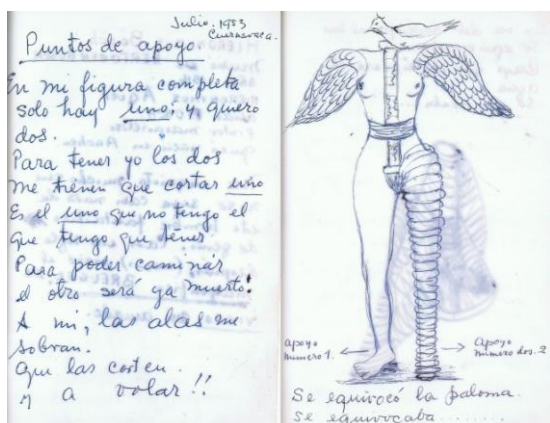 Julio. 1953
Cuernavaca.
Puntos de apoyo
En mi figura completa
solo hay uno; y quiero
dos.
Para tener yo los dos
me tienen que cortar uno
Es el uno que no tengo el
que tengo que tener
Para poder caminar
el otro será ya muerto!
A mi, las alas me
sobran.
Que las corten.
y a volar!!
apoyo
numero 1.
Apoyo
numero dos. 2
Se equivocó la paloma.
Se equivocaba........